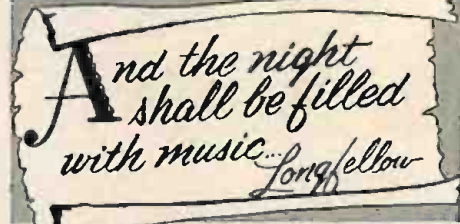 And the night
shall be filled
with music...
Longfellow